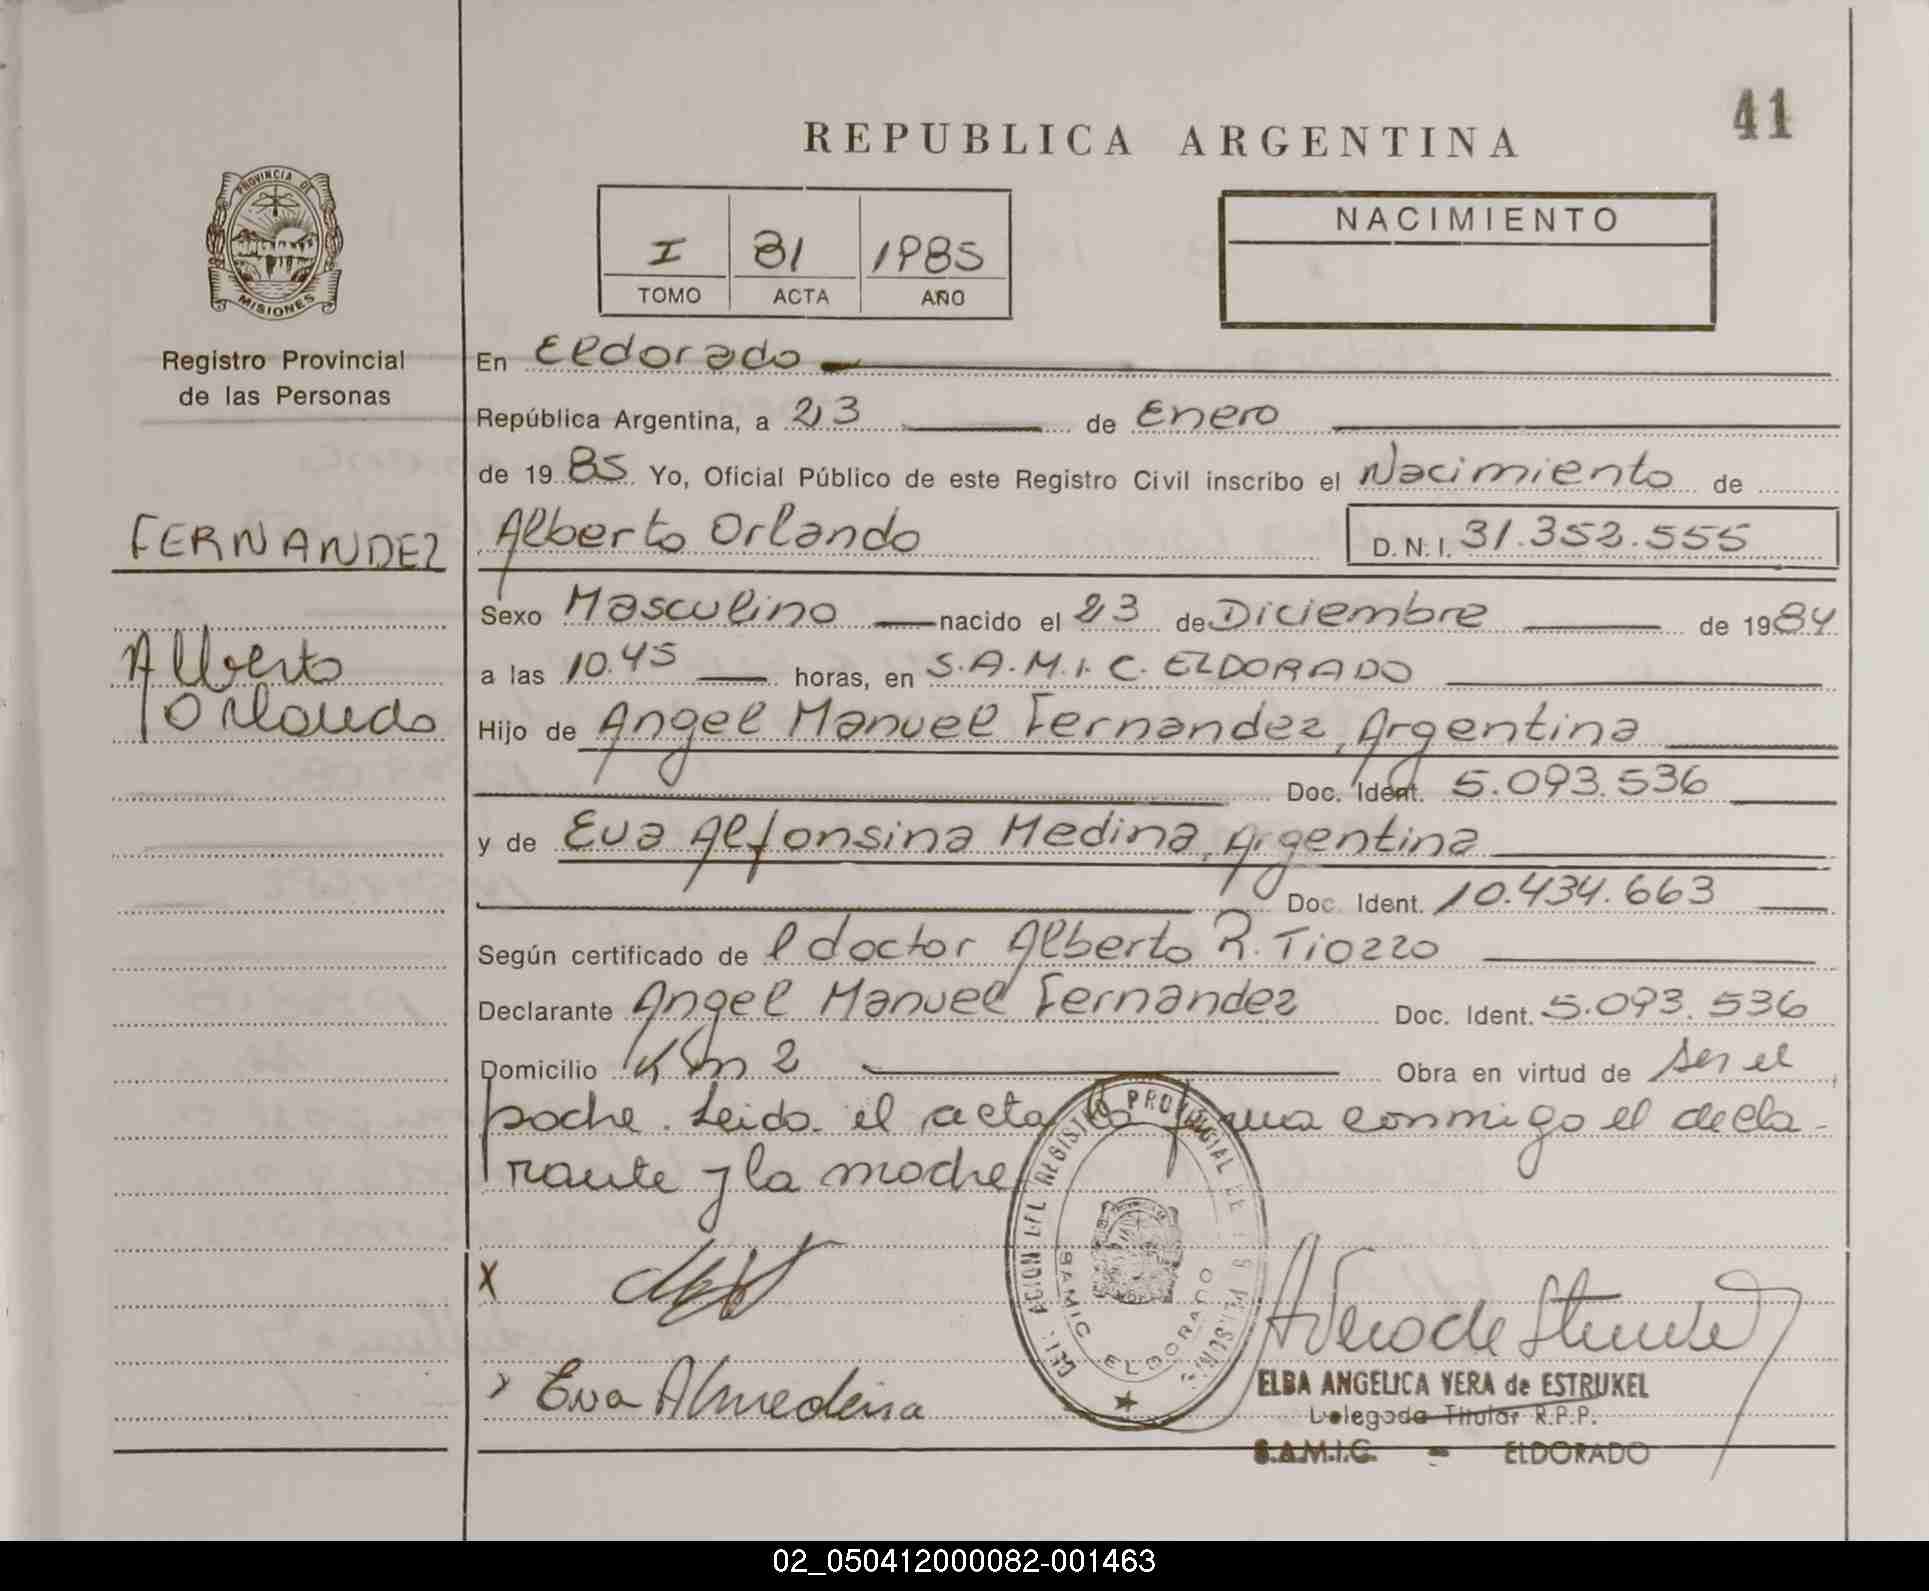 41
REPUBLICA ARGENTINA
PROVINCIA DE
MISIONES
I 81 1985
TOMO ACTA AÑO
NACIMIENTO
Registro Provincial
de las Personas
En Eldorado
República Argentina, a 23 de Enero
de 1985 Yo, Oficial Público de este Registro Civil inscribo el Nacimiento de
FERNANDEZ
Alberto Orlando D.N.I. 31.352.555
Alberto
Orlando
Sexo Masculino nacido el 23 de Diciembre de 1984
a las 10.45 horas, en S.A.M.I.C. ELDORADO
Hijo de Angel Manuel Fernandez, Argentina
Doc. Ident. 5.093.536
y de Eva Alfonsina Medina, Argentina
Doc. Ident. 10.434.663
Según certificado de l doctor Alberto R. Tiozzo
Declarante Angel Manuel Fernandez Doc. Ident. 5.093.536
Domicilio Km 2 Obra en virtud de ser el
padre. Leida el acta la firma conmigo el decla-
rante y la madre
REGISTRO PROVINCIAL DE LAS PERSONAS
SAMIC ELDORADO
X
Eva A Medina
ELBA ANGELICA VERA de ESTRUKEL
Delegada Titular R.P.P.
S.A.M.I.C. - ELDORADO
02_050412000082-001463